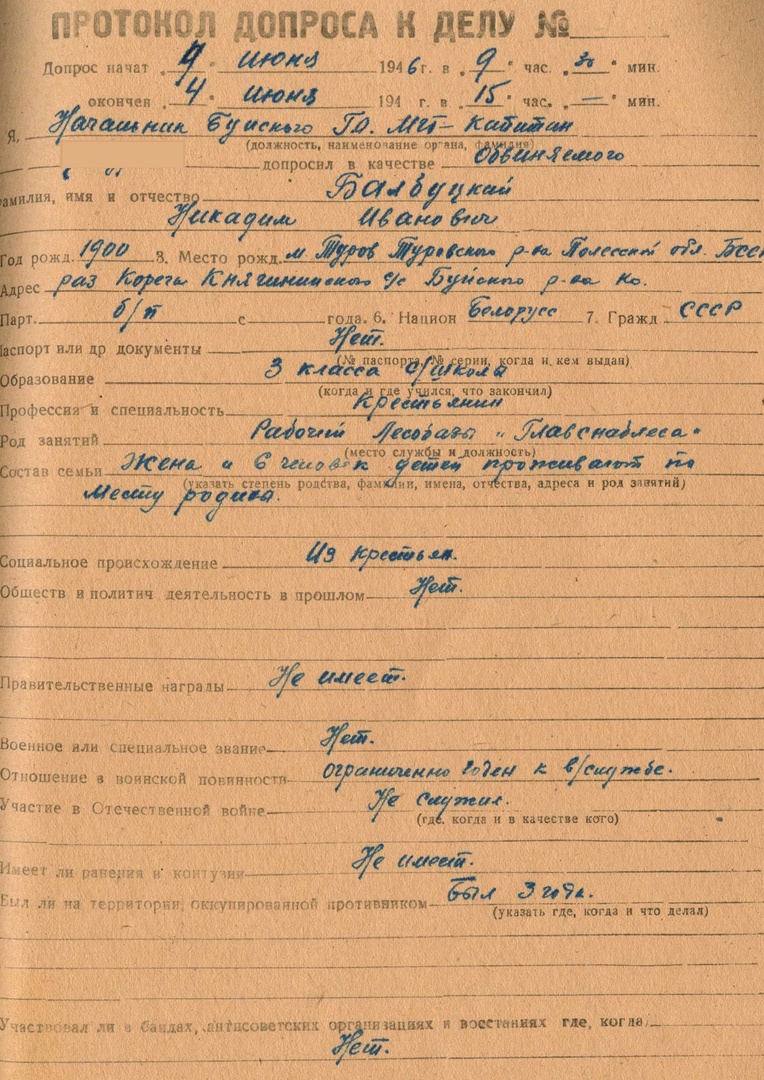 ПРОТОКОЛ ДОПРОСА К ДЕЛУ №
Допрос начат „4" июня 1946 г. в „9" час. „30" мин.
окончен „4" июня 194 г. в „15" час. „—" мин.
Я, Начальник Буйского ГО. МГБ – Капитан
(должность, наименование органа, фамилия)
допросил в качестве обвиняемого
амилия, имя и отчество Балбуцкий
Никадим Иванович
Год рожд. 1900 3. Место рожд. м. Туров Туровского р-на Полесской обл. БССР
Адрес раз Корега Княгининского с/с Буйского р-на Ко.
Парт. б/п с года. 6. Национ Белорусс 7. Гражд СССР
аспорт или др документы Нет.
(№ паспорта, № серии, когда и кем выдан)
Образование 3 класса с/школы
(когда и где учился, что закончил)
Профессия и специальность Крестьянин
Род занятий Рабочий Лесобазы „Главснаблеса"
(место службы и должность)
Состав семьи Жена и 6 человек детей проживают по
(указать степень родства, фамилии, имена, отчества, адреса и род занятий)
месту родины.
Социальное происхождение Из крестьян.
Обществ и политич деятельность в прошлом Нет.
Правительственные награды Не имеет.
Военное или специальное звание Нет.
Отношение в воинской повинности ограниченно годен к в/службе.
Участие в Отечественной войне Не служил.
(где, когда и в качестве кого)
Имеет ли ранения и контузии Не имеет.
Был ли на территории, оккупированной противником Был 3 года.
(указать где, когда и что делал)
Участвовал ли в бандах, антисоветских организациях и восстаниях где, когда
Нет.